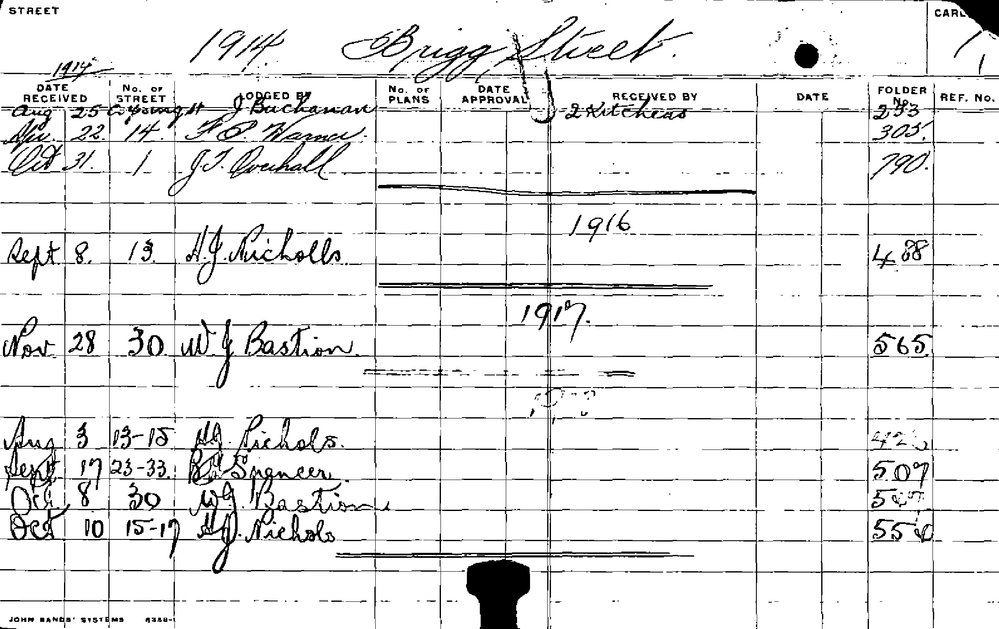 STREET
1914. Brigg Street.
CARD
1914
DATE RECEIVED No. OF STREET LODGED BY No. OF PLANS DATE APPROVAL RECEIVED BY DATE FOLDER No. REF. No.
Aug 25 J Buchanan 2 Kitchens 253
22. 14. Warner. 305.
Oct 31. 1 J. T. Overhall 790.
1916
Sept 8. 13. H.J. Nicholls. 488
1917.
Nov 28 30 W J Bastion. 565.
Aug 3 13-15 H.J. Nichols.
Sept 17 23-33. Spencer. 507
Oct 8 30 W J Bastion
Oct 10 15-17 H.J. Nichols 556
JOHN SANDS' SYSTEMS